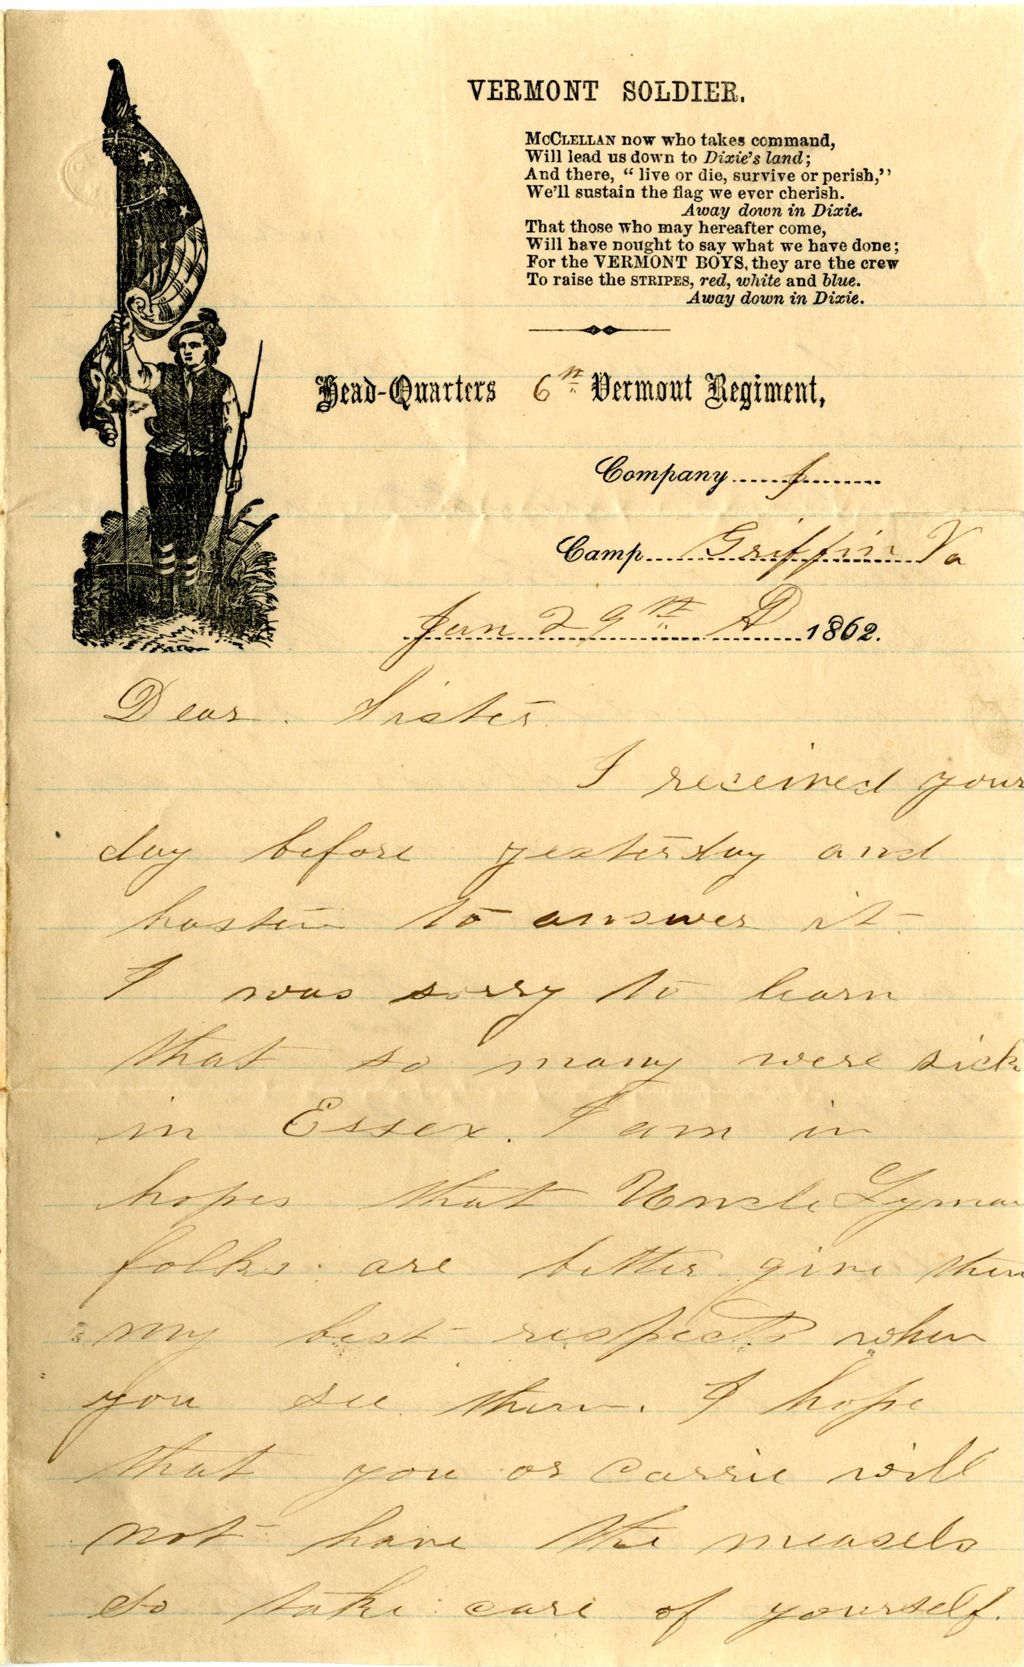 VERMONT SOLDIER.
McCLELLAN now who takes command,
Will lead us down to Dixie's land;
And there, “ live or die, survive or perish,”
We'll sustain the flag we ever cherish.
Away down in Dixie.
That those who may hereafter come,
Will have nought to say what we have done;
For the VERMONT BOYS, they are the crew
To raise the STRIPES, red, white and blue.
Away down in Dixie.
Head-Quarters 6th Vermont Regiment,
Company I
Camp Griffin Va
Jan 29th AD 1862.
Dear Sister
I received your
day before yesterday and
hasten to answer it.
I was sorry to learn
that so many were sick
in Essex. I am in
hopes that Uncle Lyman
folks are better give them
my best respects when
you see them. I hope
that you or Carrie will
not have the measels
do take care of yourself.